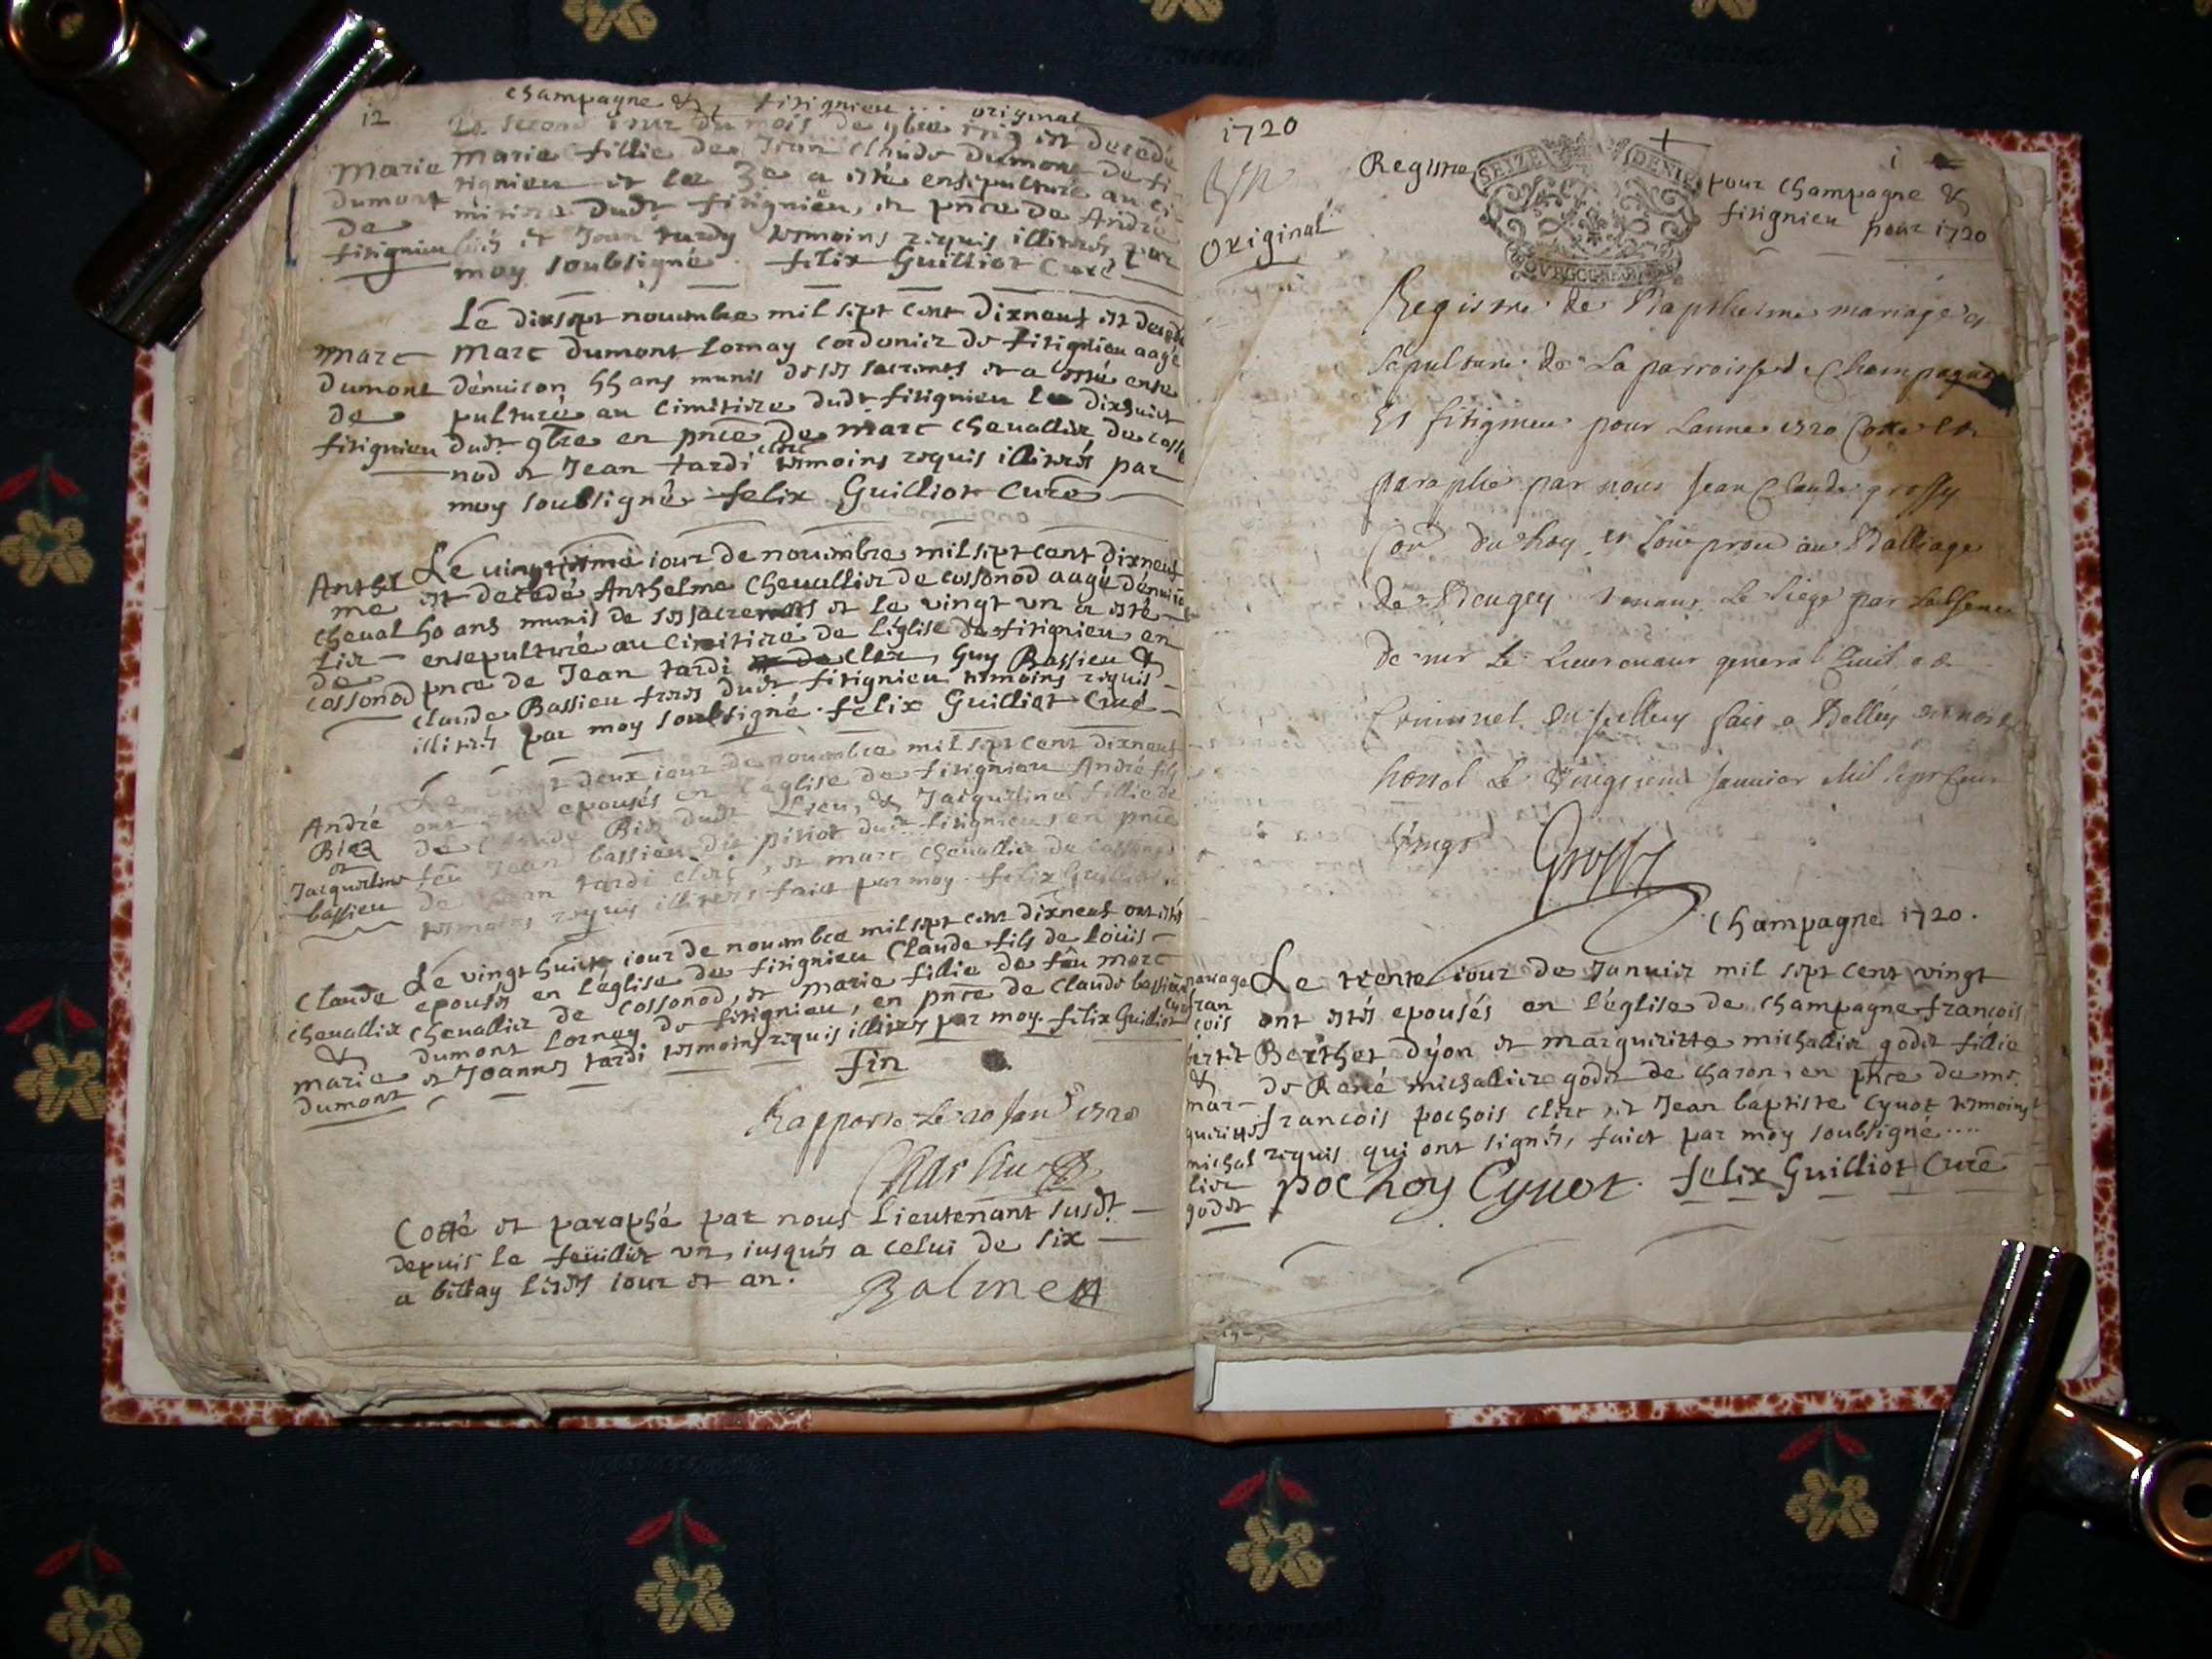 champagne & fitignieu ... original
12
Le second iour du mois de 9bre 1719 est decedé
Marie fillie de Jean Claude Dumont de fi
tignieu et le 3e a esté ensepulturé au ci
mitire dudt fitignieu, en pnce de André
et Jean tardy temoins requis illiterés, par
moy soubsigné felix Guilliot Curé
Marie
dumont
de
fitignieu
Le dixsept nouembre mil sept cent dixneuf est decedé
Marc dumont Lornay cordonier de fitignieu aagé
dénuiron 55 ans munis de ses sacremts et a esté ense
pulturé au cimitiere dudt fitignieu le dixhuict
dudt 9bre en pnce de Marc cheuallier de cosso
nod et Jean tardi clerc temoins requis illiterés par
moy soubsigné felix Guilliot Curé
Marc
dumont
de
fitignieu
Le vingtiesme iour de nouembre mil sept cent dixneuf
est decedé Anthelme Cheuallier de cossonod aagé dénuiron
50 ans munis de ses sacremts et le vingt un a esté
ensepulturé au cimitiere de l'église de fitignieu en
pnce de Jean tardi clerc, Guy Bassieu &
claude Bassieu freres dudt fitignieu temoins requis
illiterés par moy soubsigné felix Guilliot Curé
Anthel
me
cheual
lier
de
cossonod
Le vingt deux iour de nouembre mil sept cent dixneuf
ont epousés en l'église de fitignieu André fils
de Claude Biez dudt Lieu, & Jacqueline fillie de
feu Jean bassieu dit pitiot dudt fitignieu, en pnce
de Jean tardi clerc, et marc cheuallier de cossonod
temoins requis illiterés faict par moy felix Guilliot
André
Biez
et
Jacqueline
bassieu
Le vingt huict iour de nouembre mil sept cent dixneuf ont estés
epousés en l'église de fitignieu Claude fils de Loüis
cheuallier de cossonod, et marie fillie de feu marc
dumont Lornay de fitignieu, en pnce de claude bassieu
et Joannes tardi temoins requis illiterés par moy felix Guilliot curé
Claude
cheuallier
&
marie
dumont
fin
Rapporté Le 20 Janr 1720
Cotté et paraphé par nous Lieutenant susdt
depuis le feüillet un, iusqués a celui de six
a bellay lesdts iour et an.
Balme
1720
Original
Registre
SEIZE DENIE
BOVRGOGNE
1
pour champagne &
fitignieu pour 1720
Registre de Bapthesme mariage et
sepulture de La parroisse de Champagne
Et fitignieu pour Lanne 1720 Cotte et
paraphé par nous Jean Claude grossy
Con du Roy au Balliage
de Beugey tenant Le siege par Labsence
de mr Le Lieutenant general Ciuil et
Criminel fait a Belley en nostre
hostel Le Vingtieme Januier Mil sept Cent
Vingt
Grossy
Champagne 1720.
Le trente iour de Januier mil sept cent vingt
ont estés epousés en l'église de champagne françois
Berthet dyon et marguerite michallier godet fillie
de René michallier godet de charon, en pnce de mr
françois pochois clerc et Jean baptiste Cyuot temoins
requis qui ont signés, faict par moy soubsigné ....
pochoy Cyuot felix Guilliot Curé
mariage
fran
cois
bertet
&
mar-
gueritte
michal
lier
godet